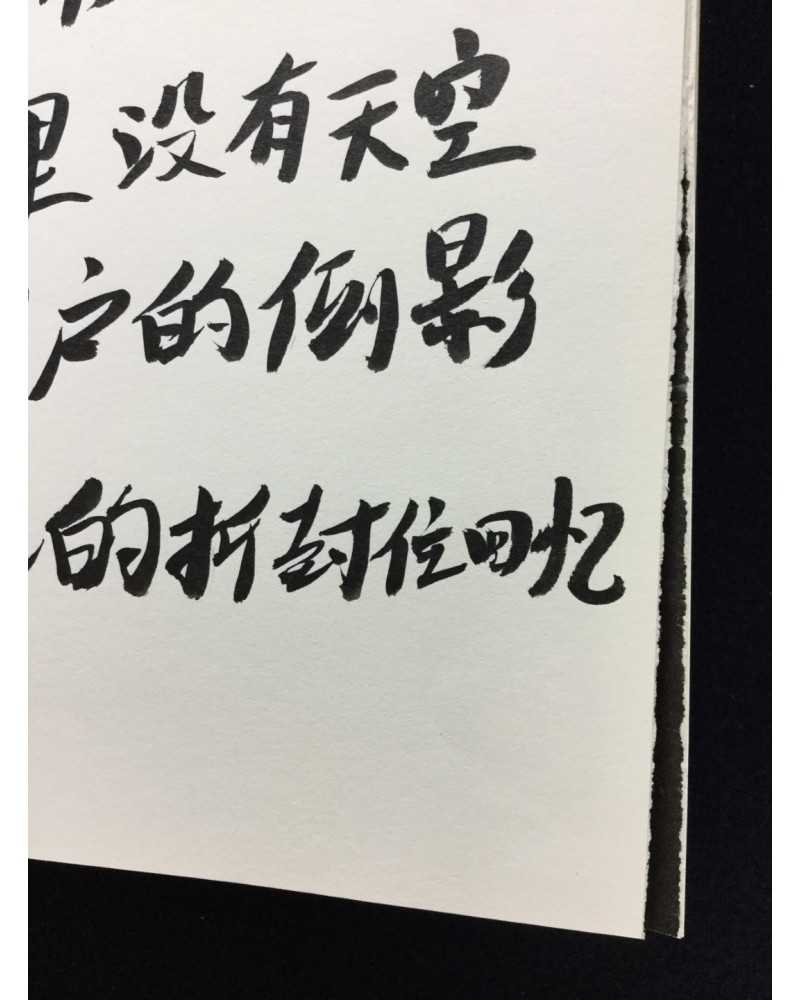 里没有天空
户的倒影
的折封住回忆